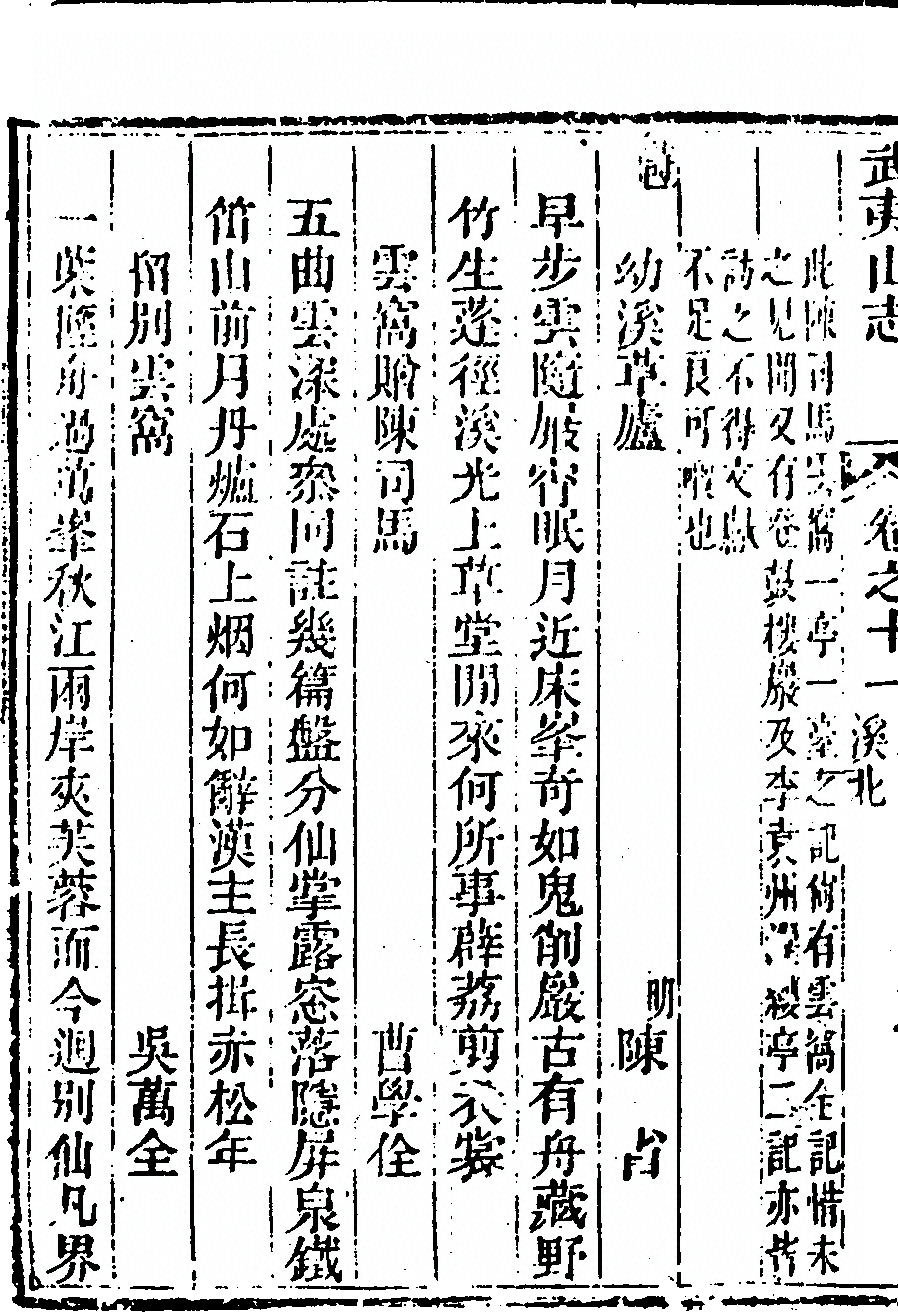 武夷山志 卷之十一 溪北
此陳司馬雲窩一亭一臺之記尚有雲窩全記惜未
之見聞又有卷鼓樓巖及李袁州深緩亭二記亦皆
訪之不得文獻
不足良可嘅也
詩
幼溪草廬 明陳省
早步雲隨屐宵眠月近床峯奇如鬼削巖古有舟藏野
竹生蓬徑溪光上草堂閒來何所事薜荔剪衣裳
雲窩贈陳司馬 曹學佺
五曲雲深處叅同註幾篇盤分仙掌露窓落隱屏泉鐵
笛山前月丹爐石上烟何如辭漢主長揖赤松年
留別雲窩 吳萬全
一葉輕舟過萬峯秋江兩岸夾芙蓉而今迴別仙凡界